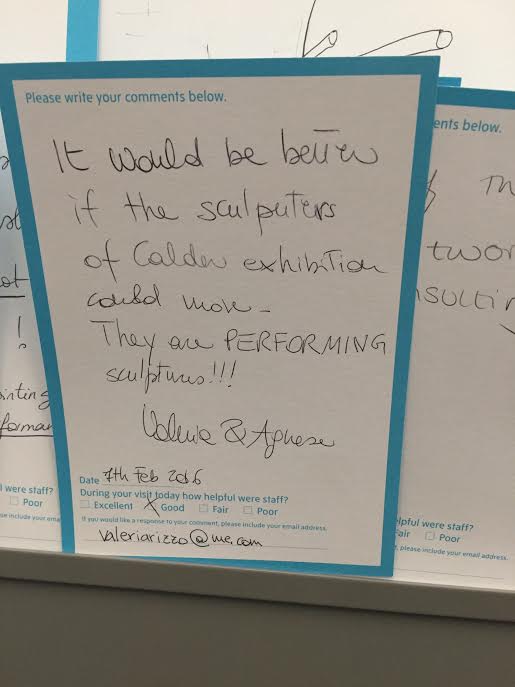 Please write your comments below.
It would be better
if the sculputers
of Calder exhibition
could move -
They are PERFORMING
sculptures!!!
Valeria & Agnese
Date 7th Feb 2016
During your visit today how helpful were staff?
Excellent Good Fair Poor
If you would like a response to your comment, please include your email address.
valeriarizzo@me.com
ents below.
l were staff?
Poor
se include your ema
lpful were staff?
Fair Poor
, please include your email address.